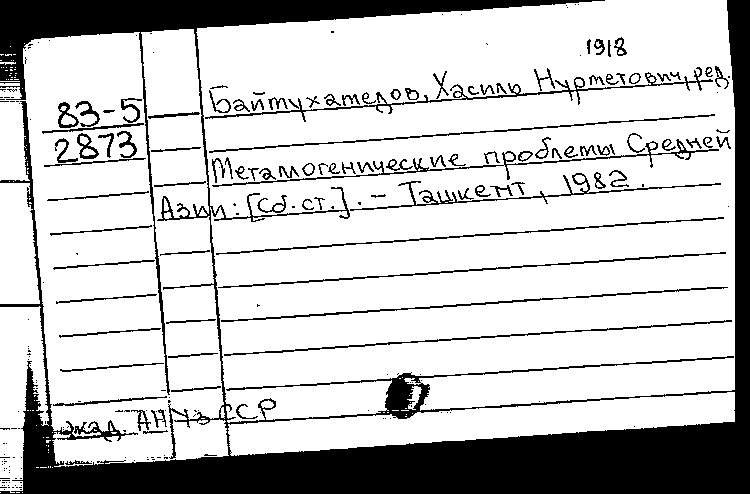 1918
83-5
2873
Байтухамедов, Хасиль Нурметович, ред.
Металлогенические проблемы Средней
Азии: [Сб. ст.]. - Ташкент, 1982.
акад. АН УзССР